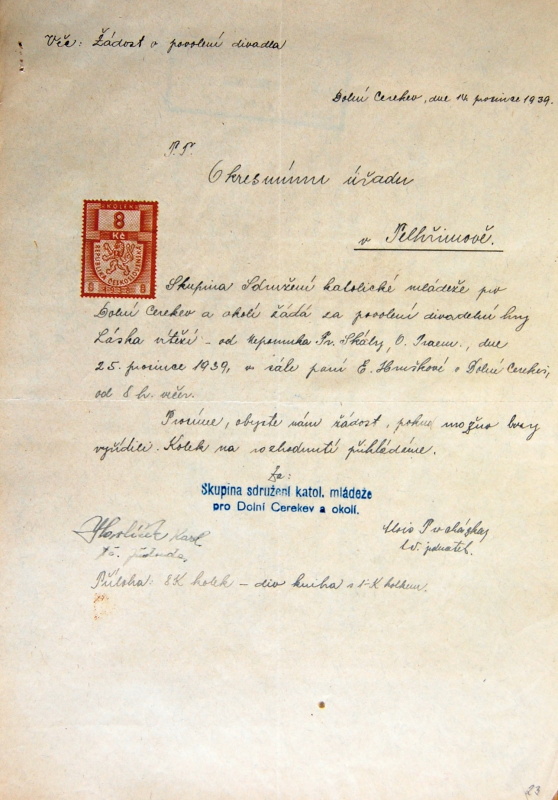 Věc: Žádost o povolení divadla
Dolní Cerekev, dne 14. prosince 1939.
P.T.
Okresnímu úřadu
v Pelhřimově.
KOLEK
8
Kč
REPUBLIKA ČESKOSLOVENSKÁ
8 8
Skupina Sdružení katolické mládeže pro
Dolní Cerekev a okolí žádá za povolení divadelní hry
Láska vítězí - od Nepomuka Fr. Skály, O. Praem., dne
25. prosince 1939, v sále paní E. Hruškové v Dolní Cerekvi,
od 8 h. večer.
Prosíme, abyste nám žádost, pokud možno brzy
vyřídili. Kolek na rozhodnutí přikládáme.
Za:
Skupina sdružení katol. mládeže
pro Dolní Cerekev a okolí.
Karel
Alois Procházka
t.č. předseda
t.č. jednatel.
Příloha: 8K kolek - div. kniha s 1-K kolkem.
23